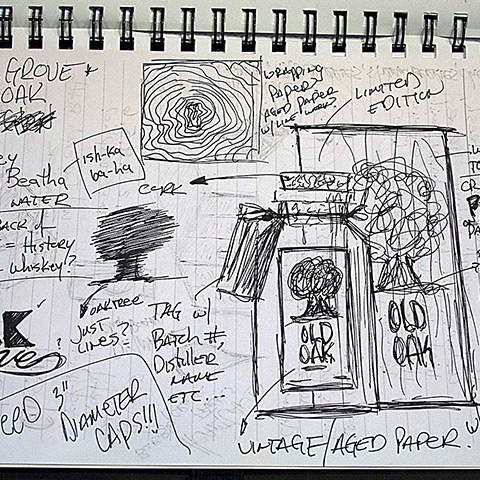 GROVE &
OAK
WRAPPING
PAPER?
AGED PAPER
W/ LINE WORK
LIMITED
EDITION
ish-ka
ba-ha
Beatha
WATER
CORK
BACK of
= History
= Whiskey?
OAKTREE
JUST
LINES?
TAG w/
BATCH #,
DISTILLER
NAME
ETC...
OLD
OAK
OLD
OAK
K
?
3"
DIAMETER
CAPS!!!
VINTAGE/AGED PAPER